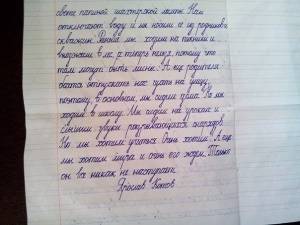 свете папиной шахтёрской лампы. Нам
отключают воду и мы носим её из родников и
скважин. Раньше мы ходили на пикники и
в лес, а теперь нельзя, потому что
там могут быть мины. А ещё родители
боятся отпускать нас гулять на улицу,
поэтому, в основном, мы сидим дома. Но мы
ходим в школу. Мы сидим на уроках и
слышим звуки разрывающихся снарядов.
Но мы хотим учиться. Очень хотим! А ещё
мы хотим мира и очень его ждём. Только
он всё никак не наступает.
Ярослав